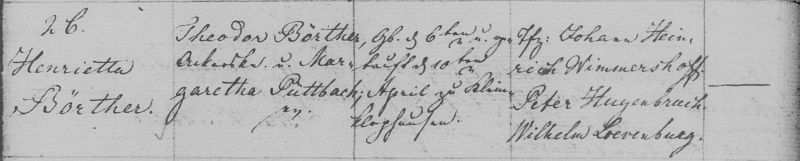 26.
Henrietta
Börther.
Theodor Börther,
Ackersm. u. Mar-
garetha Püttbach,
Gb. d 6ten u. ge-
tauft d 10ten
April zu Klein-
klophausen.
Tfz: Johann Hein-
rich Wimmershoff.
Peter Hugenbruch.
Wilhelm Loevenburg.